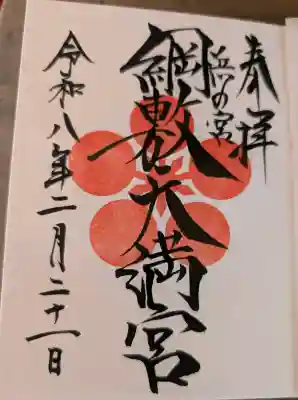 奉拝
浜の宮
綱敷天満宮
令和八年二月二十一日